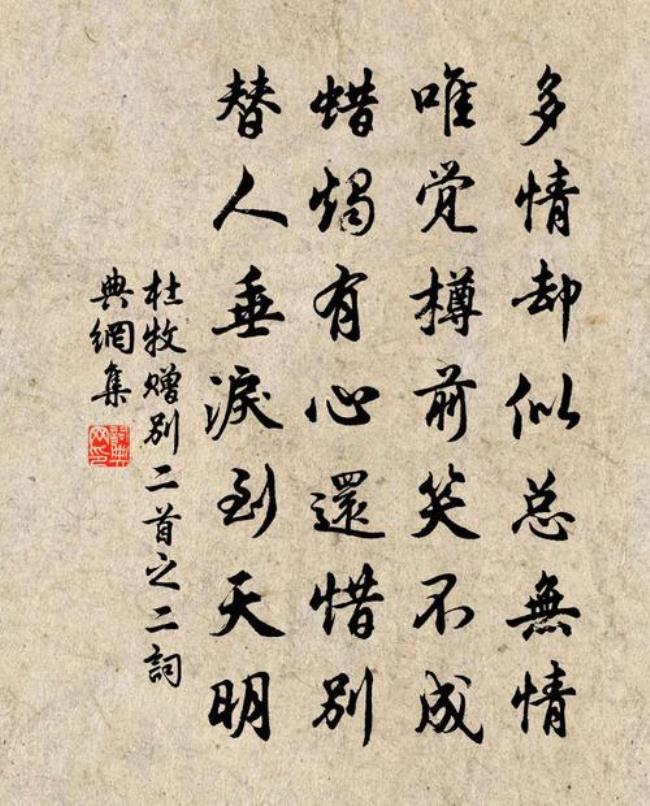 多情却似总無情
唯覚樽前笑不成
蜡烛有心還惜别
替人垂淚到天明
杜牧赠别二首之二詞
典網集